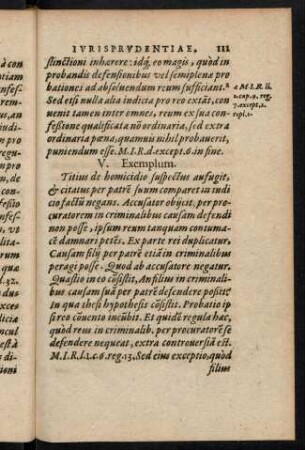 IVRISPRVDENTIAE. 111
stinctioni inhærere: idq; eo magis, quòd in
probandis defensionibus vel semiplenæ pro
bationes ad absoluendum reum sufficiant. a
Sed etsi nulla alia indicia pro reo extāt, con
uenit tamen inter omnes, reum ex sua con-
feßione qualificata nō ordinaria, sed extra
ordinaria pœna, quamuis nihil probauerit,
puniendum esse. M.I.R.d.except.6. in fine.
V. Exemplum.
Titius de homicidio suspectus aufugit,
& citatus per patrē suum comparet in iudi
cio factū negans. Accusator obijcit. per pro-
curatorem in criminalibus causam defendi
non posse, ipsum reum tanquam contuma-
cē damnari petēs. Ex parte rei duplicatur,
Causam filij per patrē etiā in criminalibus
peragi posse. Quod ab accusatore negatur.
Quæstio in eo cōsistit, An filius in criminali-
bus causam suā per patrē defendere poßit?
In qua thesis hypothesis cōsistit. Probatio ip
si reo cōuento incūbit. Et quidē regula hæc,
quòd reus in criminalib. per procuratorē se
defendere nequeat, extra controuersiā est.
M.I.R.l.1.c.6.reg.13. Sed eius exceptio, quòd
filius
a M.I.R. li.
2. cap. 9. reg.
7. except. 2.